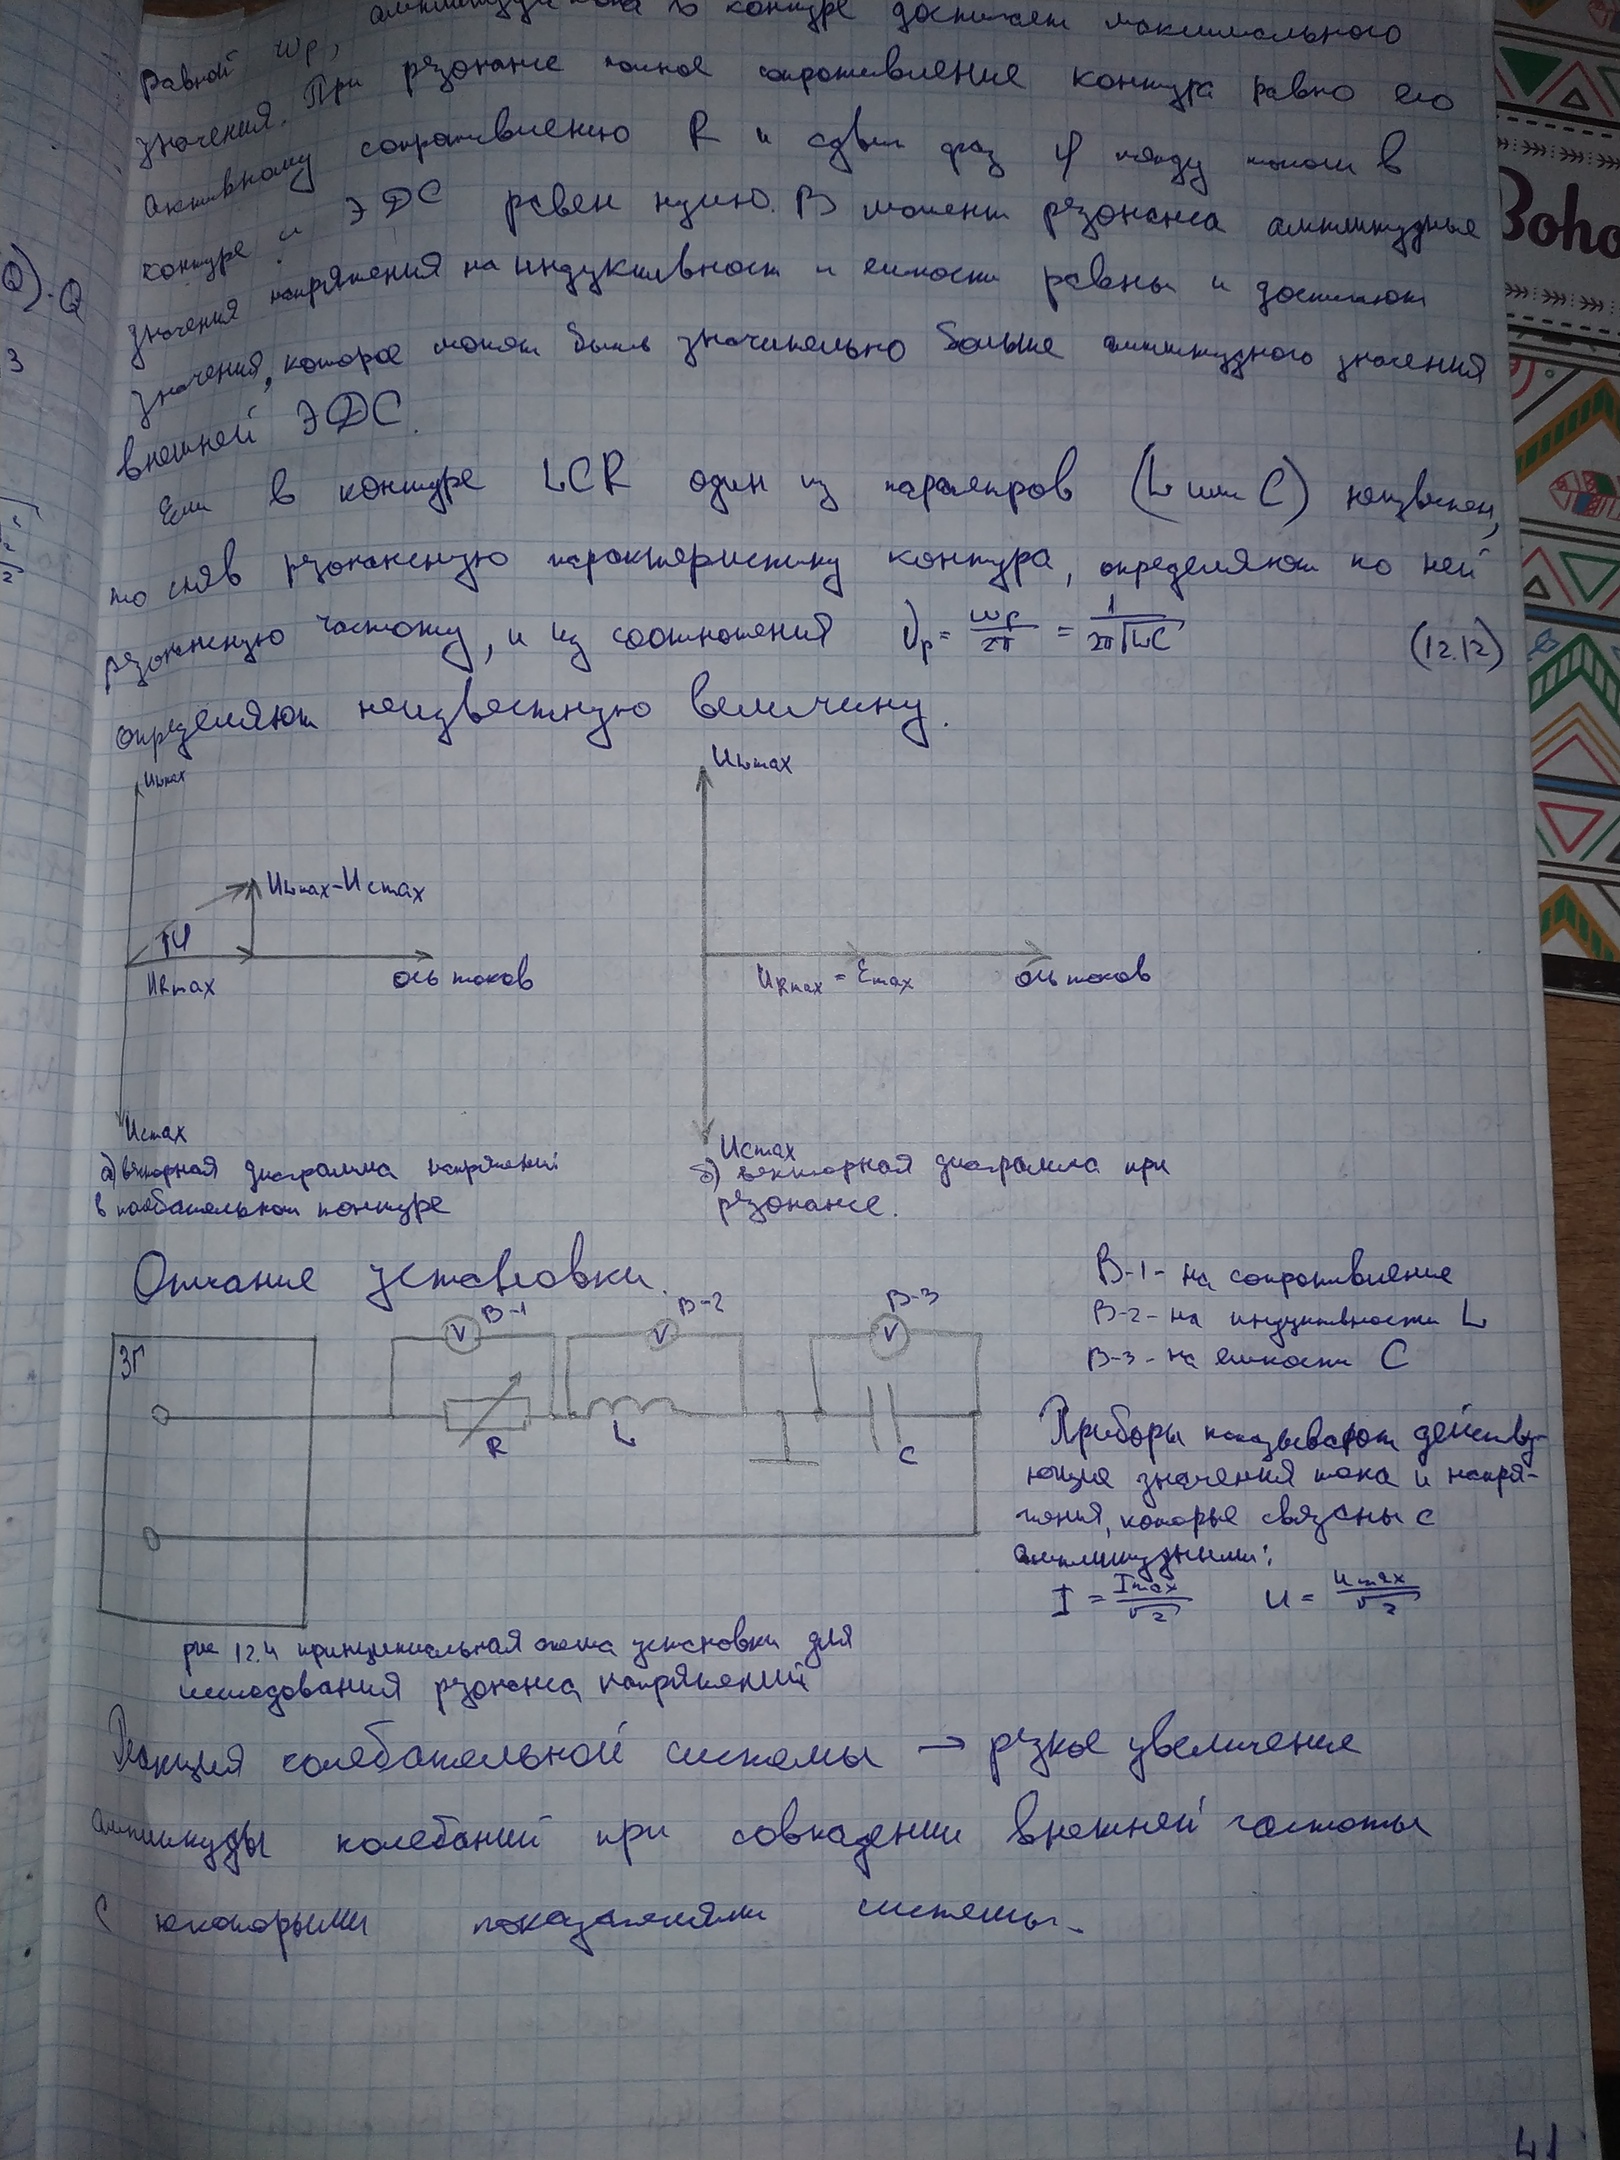 равной ωр, амплитуда тока в контуре достигает максимального
значения. При резонансе полное сопротивление контура равно его
активному сопротивлению R и сдвиг фаз φ между током в
контуре и ЭДС равен нулю. В момент резонанса амплитудные
значения напряжения на индуктивности и емкости равны и достигают
значения, которое может быть значительно больше амплитудного значения
внешней ЭДС.
Если в контуре LCR один из параметров (L или C) неизвестен,
то сняв резонансную характеристику контура, определяют по ней
резонансную частоту, и из соотношения νр = ωр/2π = 1/2π√LC (12.12)
определяют неизвестную величину.
ULmax
ULmax
ULmax-UCmax
φ
URmax
ось токов
URmax = Emax
ось токов
UCmax
UCmax
а) векторная диаграмма напряжений
в колебательном контуре
б) векторная диаграмма при
резонансе.
Описание установки.
В-1 - на сопротивление
В-2 - на индуктивности L
В-3 - на емкости C
В-1
В-2
В-3
V
V
V
ЗГ
R
L
C
Приборы показывают действу-
ющие значения тока и напря-
жения, которые связаны с
амплитудными:
I = Imax/√2 U = Umax/√2
рис 12.4 принципиальная схема установки для
исследования резонанса напряжений
Реакция колебательной системы → резкое увеличение
амплитуды колебаний при совпадении внешней частоты
с некоторыми показателями системы.
41
Q)·Q
3
Boho